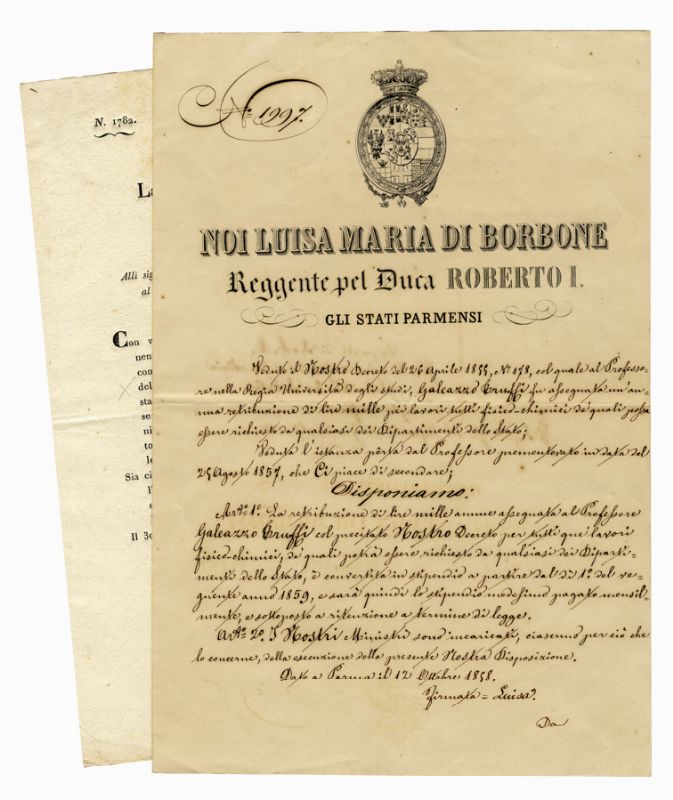 N. 1782.
La
Alli sig
al
Con v
nen
con
del
sta
se
ni
to
le
Sia ci
l'
c
Il 30
N.° 1997.
NOI LUISA MARIA DI BORBONE
Reggente pel Duca ROBERTO I.
GLI STATI PARMENSI
Veduto il Nostro Decreto del 26 Aprile 1855, N.° 178, col quale al Professo-
re nella Regia Università degli studi, Galeazzo Truffi fu assegnata un'an-
nua retribuzione di lire mille pei lavori tutti fisico-chimici de' quali possa
essere richiesto da qualsiasi dei Dipartimenti dello Stato;
Veduta l'istanza pòrta dal Professore prementovato in data del
25 Agosto 1857, che Ci piace di secondare;
Disponiamo:
Art.° 1.° La retribuzione di lire mille annue assegnata al Professore
Galeazzo Truffi col precitato Nostro Decreto per tutti que' lavori
fisico-chimici, de' quali potrà essere richiesto da qualsiasi dei Diparti-
menti dello Stato, è convertita in stipendio a partire dal dì 1.° del ve-
gnente anno 1859, e sarà quindi lo stipendio medesimo pagato mensil-
mente, e sottoposto a ritenzione a termine di legge.
Art.° 2.° I Nostri Ministri sono incaricati, ciascuno per ciò che
lo concerne, della esecuzione della presente Nostra Disposizione.
Dato a Parma il 12 Ottobre 1858.
Firmata = Luisa.
Da